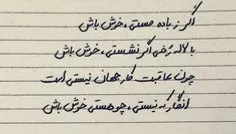 اگر ز باده مستی، خوش باش
با لاله رخی اگر نشستی، خوش باش
چون عاقبت کار جهان نیستی است
انگار که نیستی، چو هستی خوش باش